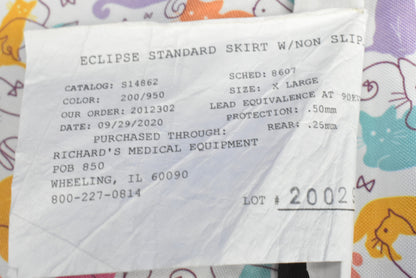 ECLIPSE STANDARD SKIRT W/NON SLIP
CATALOG: S14862 SCHED: 8607
COLOR: 200/950 SIZE: X LARGE
OUR ORDER: 2012302 LEAD EQUIVALENCE AT
DATE: 09/29/2020 PROTECTION: .50mm
PURCHASED THROUGH: REAR: .25mm
RICHARD'S MEDICAL EQUIPMENT
POB 850
WHEELING, IL 60090
800-227-0814
LOT # 2002